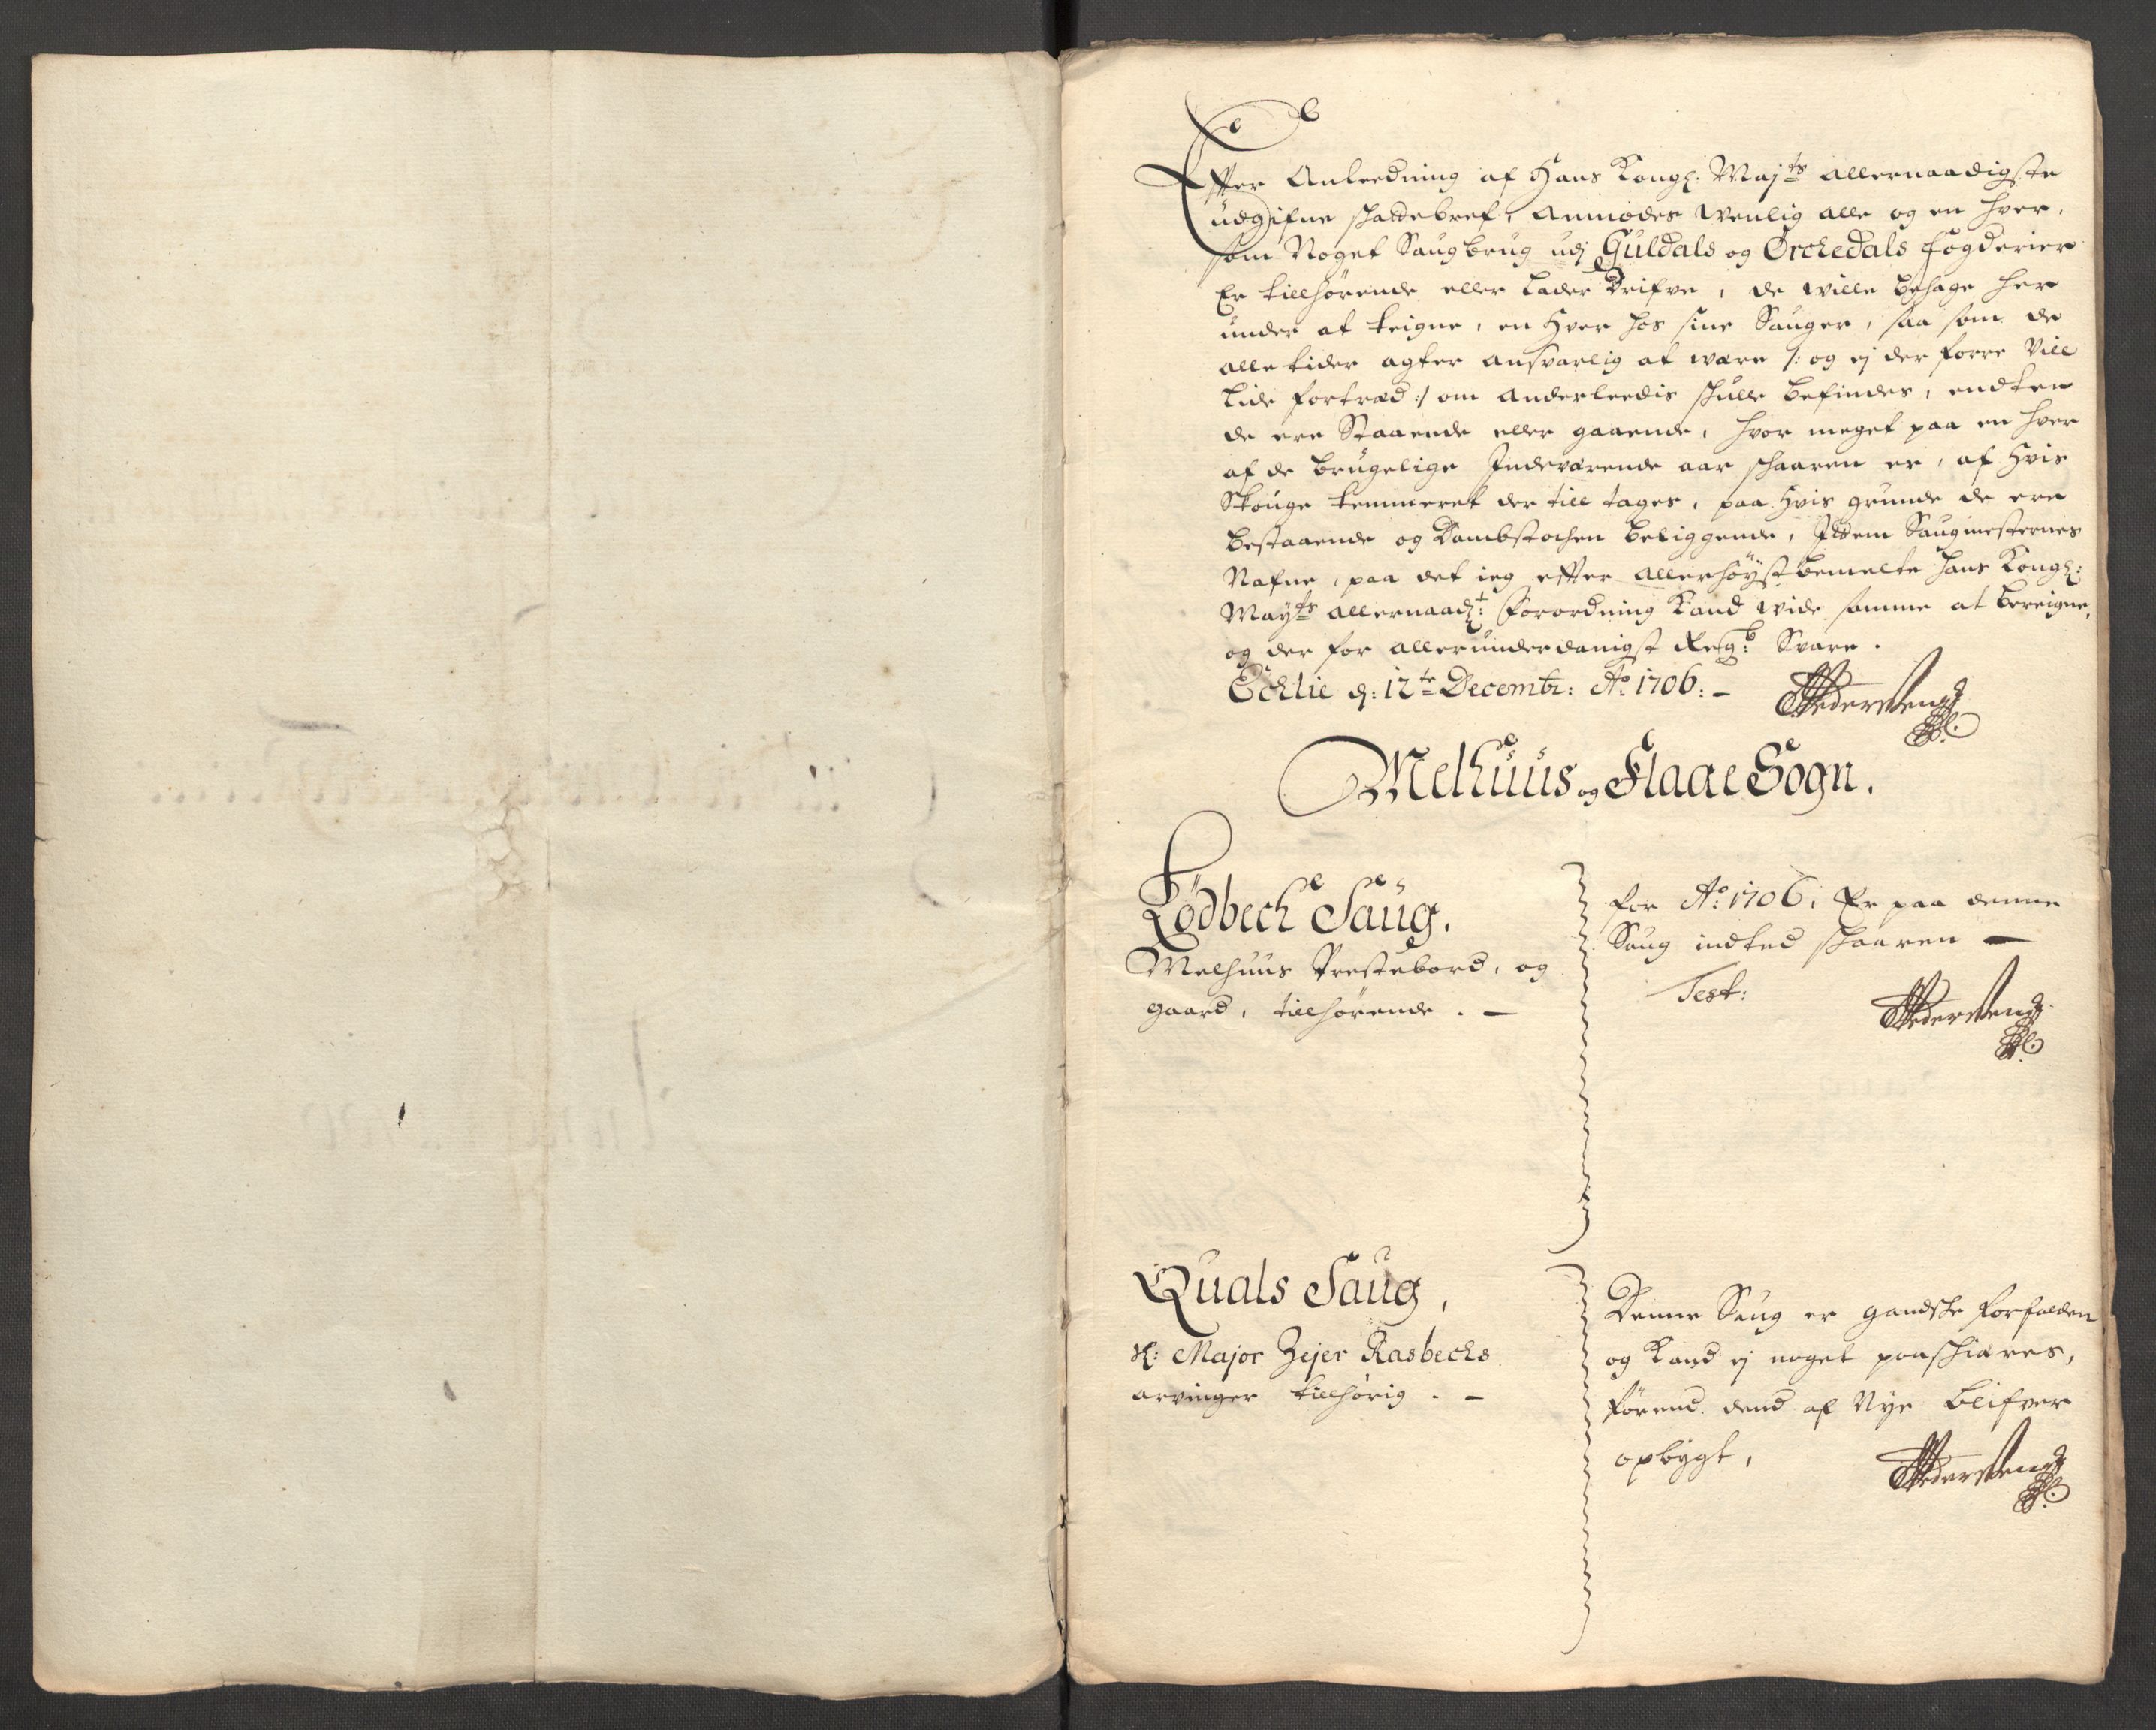 Effter Anleedning af Hans Kongl: Maj:ts allernaadigste
udgifne schattebref, Anmodes Venlig alle og en hver,
som Noget Saugbrug udj Guldals og Orchedals fogderier
Er tillhørende eller lader drifve, de wille behage her
under at teigne, en hver hos sine Sauger, saa som de
alle tider agter ansvarlig at være /: og ej der forre Vill
lide fortræd :/ om anderleedis skulle befindes, endten
de ere Staaende eller gaaende, hvor meget paa en hver
af de brugelige Indeværende aar schaaren er, af Hvis
Skouge temmeret der till tages, paa Hvis grunde de ere
bestaaende og Dambstochen beliggende, Ittem Saugmesternes
Nafne, paa det ieg effter allerhøyst bemelte Hans Kongl:
May:ts allernaad:t forordning kand wide samme at bereigne,
og der for allerunderdanigst Svare.
Echlie d: 12te Decembr: Ao 1706: -
Melhuus og Flaae Sogn.
Rødbech Saug.
Melhuus Prestebord, og
gaard, tillhørende. -
for Ao: 1706, Er paa denne
Saug indted schaaren -
Test:
Quals Saug,
Sl: Major Zejer Rasbechs
arvinger tillhørig. -
Denne Saug er gandske forfalden
og kand ej noget paaschiæres,
førend dend af Nye blifver
opbygt,